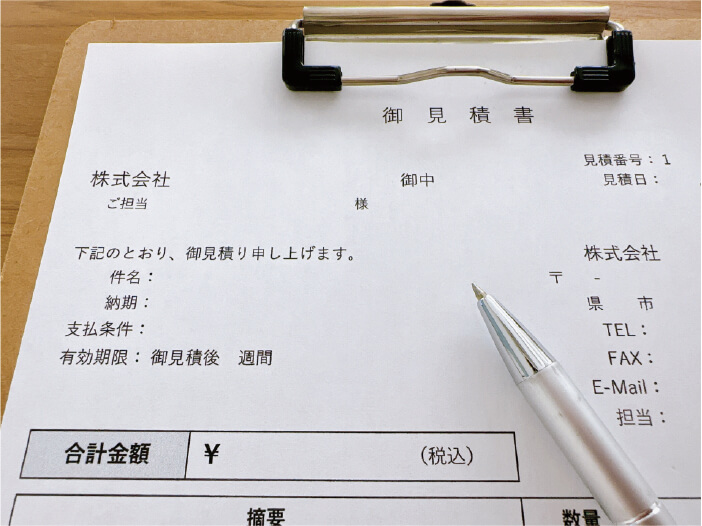 御 見 積 書
見積番号：1
株式会社 御中 見積日：
ご担当 様
下記のとおり、御見積り申し上げます。 株式会社
件名： 〒 -
納期： 県 市
支払条件： TEL：
有効期限：御見積後 週間 FAX：
E-Mail：
担当：
合計金額 ¥ (税込)
摘要 数量